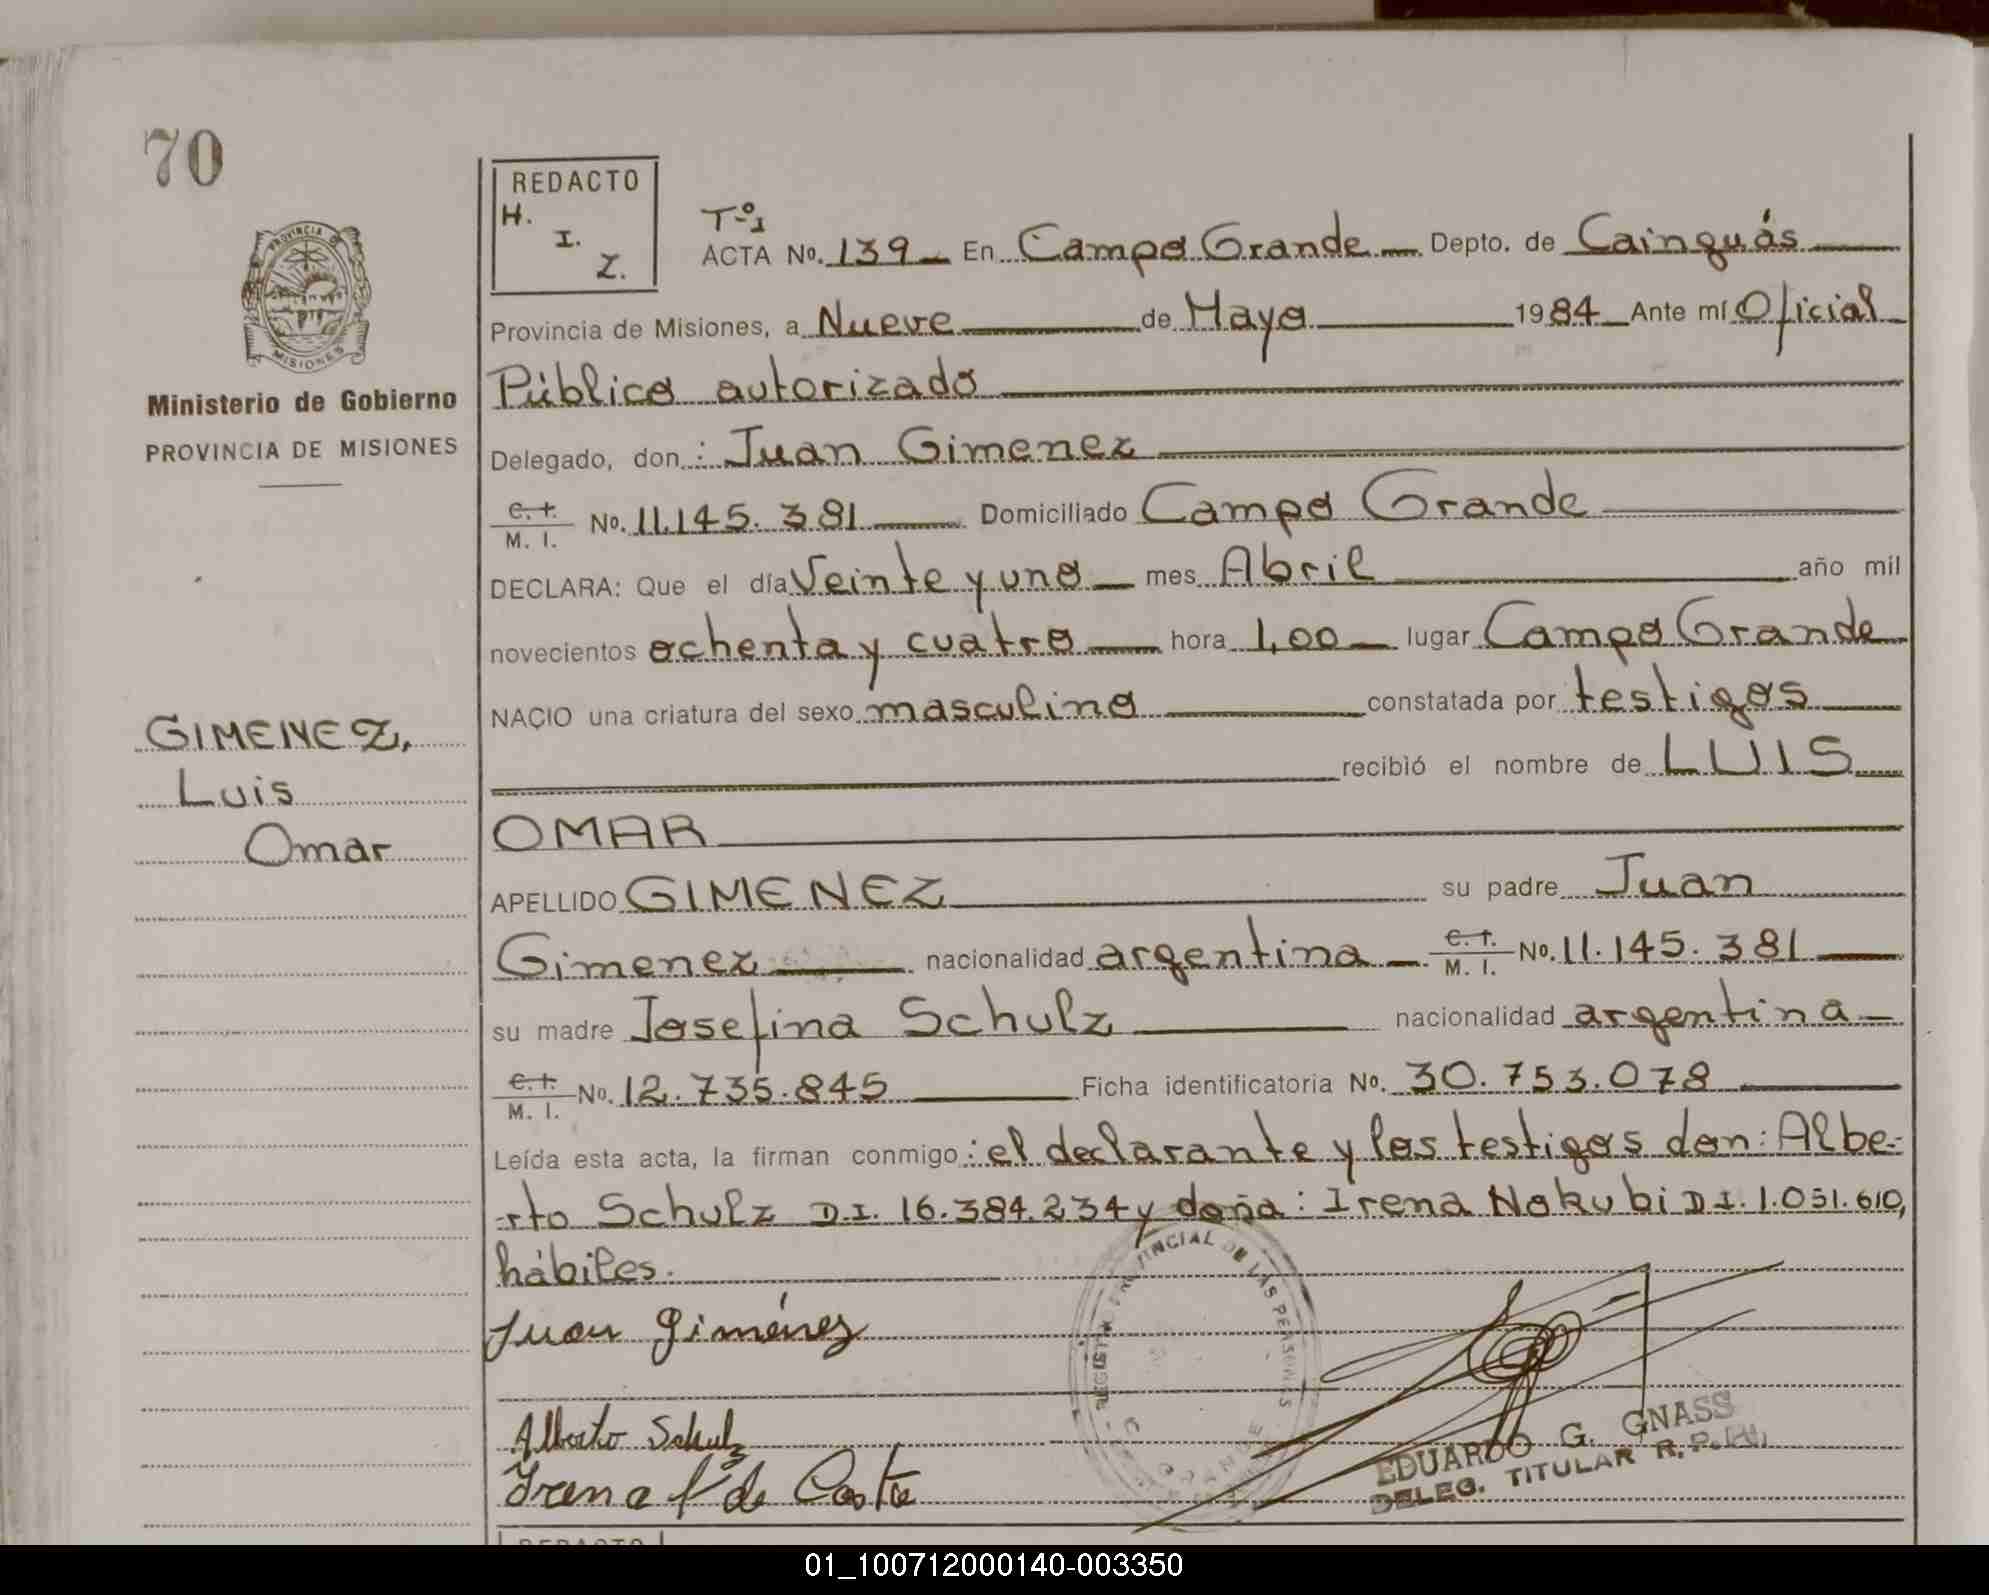 70
REDACTO
H.
I.
Z.
Tº1
ACTA No. 139 En Campo Grande Depto. de Cainguás
PROVINCIA DE
MISIONES
Provincia de Misiones, a Nueve de Mayo 1984 Ante mí Oficial
Ministerio de Gobierno
PROVINCIA DE MISIONES
Público autorizado
Delegado, don : Juan Gimenez
C. I. M. I. No. 11.145.381 Domiciliado Campo Grande
DECLARA: Que el día Veinte y uno mes Abril año mil
novecientos ochenta y cuatro hora 1,00 lugar Campo Grande
NACIO una criatura del sexo masculino constatada por testigos
GIMENEZ,
Luis
Omar
recibió el nombre de LUIS
OMAR
APELLIDO GIMENEZ su padre Juan
Gimenez nacionalidad argentina C. I. M. I. No. 11.145.381
su madre Josefina Schulz nacionalidad argentina
C. I. M. I. No. 12.735.845 Ficha identificatoria No. 30.753.078
Leída esta acta, la firman conmigo : el declarante y los testigos don: Albe-
-rto Schulz D.I. 16.384.234 y doña: Irena Nokubi D.I. 1.051.610,
hábiles.
Juan Giménez
REGISTRO PROVINCIAL DE LAS PERSONAS
Alberto Schulz
EDUARDO G. GNASS
DELEG. TITULAR
Irena de
REDACTO
01_100712000140-003350